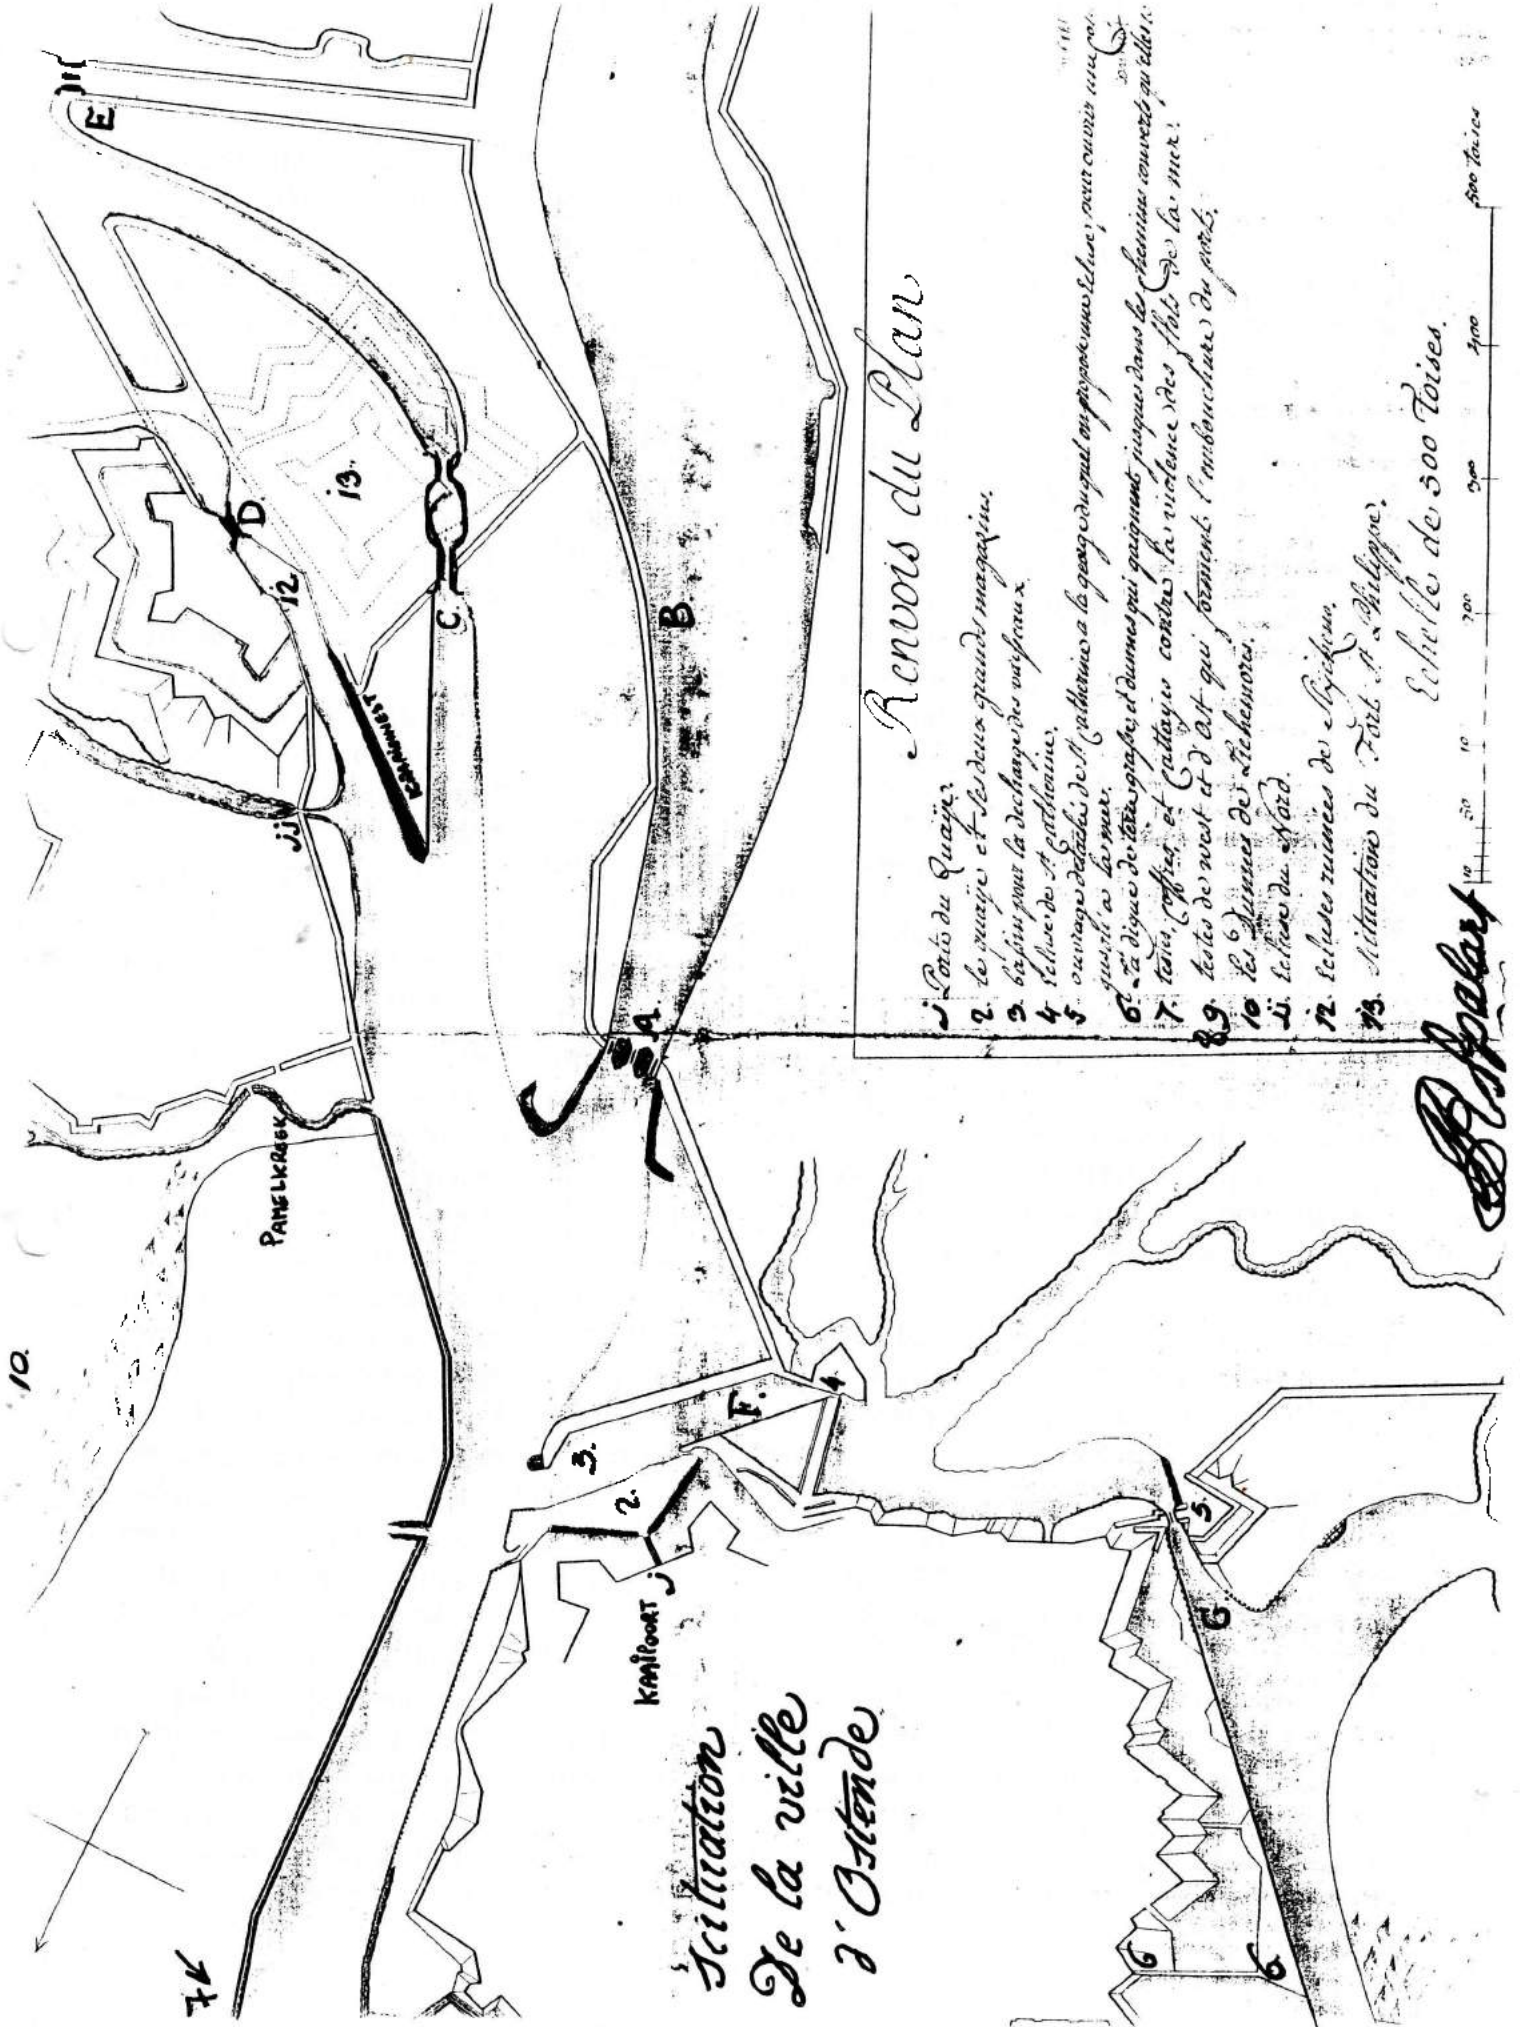 Scituation
De la ville
d'Ostende
Renvois du Plan
j Porte du Quaÿe.
2. le quaÿe et les deux grands magazins.
3. bassins pour la decharge des vaisseaux
4 Ecluse de St. Catherine.
5. ouvrage detaché de St. Catherine a la gorge duquel on propose une Ecluse, pour ouvrir une
jusqu'a la mer.
6. La digue de et dunnes qui gaignent jusques dans les chemins couverts qu'elles
7. testes, coffres, et contre la violence des flots de la mer.
8 9. testes de west et d'Ost qui forment l'embouchure du port.
10 les 6 Dunnes de
jj. Ecluse du Nord.
12. Ecluses ruinées de Slÿckens.
13. situation du Fort St. Philippe.
Echelle de 500 Toises.
10 50 10 200 300 400 500 toises
10.
7
PAMELKREEK
KAAIPOORT
j
2.
3.
F.
4
5.
G.
6
6
A.
B
C
D.
E
jj
12
13.